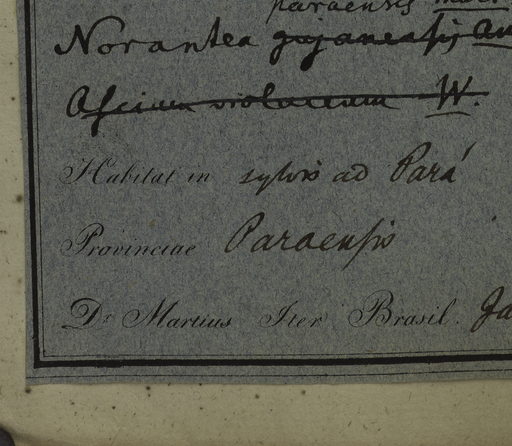 paraensis
Norantea gujanensis
Ascium violaceum W.
Habitat in sylvis ad Pará
Provinciae Paraensis
Dr. Martius Iter Brasil.